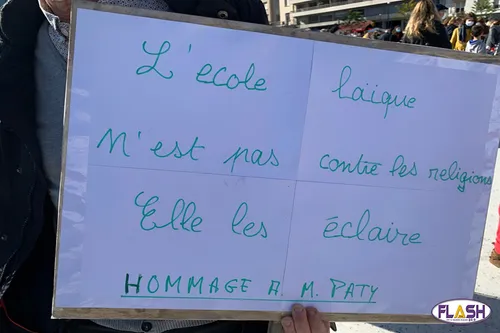 L'ecole laïque
N'est pas contre les religions
Elle les éclaire
HOMMAGE A M. PATY
FLASH